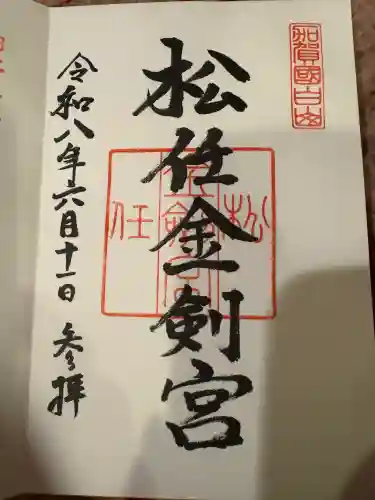 加賀國白山
松任金剣宮
松
金剣宮
任
令和八年六月十一日 参拝